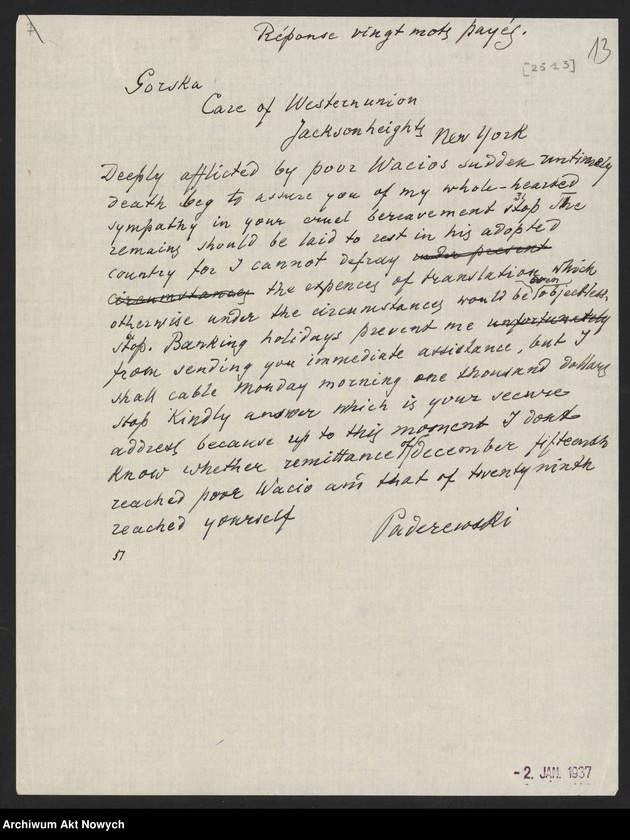 Réponse vingt mots payés.
13
[2513]
Gorska
Care of Westernunion
Jacksonheights New York
Deeply afflicted by poor Wacios sudden untimely
death beg to assure you of my whole-hearted
sympathy in your cruel bereavement stop The
remains should be laid to rest in his adopted
country for I cannot defray under present
circumstances the expences of translation which
otherwise under the circumstances would be even objectless.
stop. Banking holidays prevent me unfortunately
from sending you immediate assistance, but I
shall cable Monday morning one thousand dollars
stop Kindly answer which is your secure
address because up to this moment I dont
know whether remittance of december fifteenth
reached poor Wacio and that of twenty ninth
reached yourself
Paderewski
51
- 2. JAN. 1937
Archiwum Akt Nowych